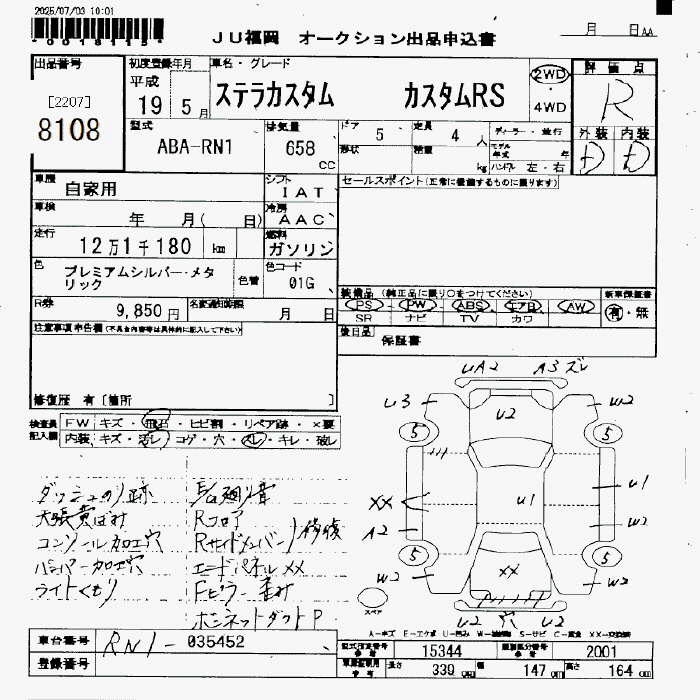 2025/07/03 10:01
*0018115*
JU福岡 オークション出品申込書
月 日 AA
出品番号
[2207]
8108
初度登録年月
平成
19 5 月
車名・グレード
ステラカスタム カスタムRS
2WD
・
4WD
評価点
R
外装 内装
D D
型式
ABA-RN1
排気量
658
cc
ドア 5
形状
定員 4 人
積量 kg
ディーラー・並行
モデル年式 年
ハンドル 左・右
車歴
自家用
シフト
IAT
セールスポイント(正常に機能するものに限ります)
車検
年 月( 日)
冷房
AAC
走行
12万1千180 km
燃料
ガソリン
色
プレミアムシルバー・メタリック
色替
色コード
01G
R券
9,850 円
名変通知期限
月 日
装備品 (純正品に限り○をつけてください)
PS PW ABS エアB AW
SR ナビ TV カワ
新車保証書
有・無
後日品
保証書
注意事項申告欄(不具合内容等は具体的に記入して下さい)
修復歴 有[箇所 ]
検査員記入欄
FW キズ・飛石・ヒビ割・リペア跡・×要
内装 キズ・汚レ・コゲ・穴・スレ・キレ・破レ
ダッシュのり跡
天張黄ばみ
コンソール加工穴
バンパー加工穴
ライトくもり
Rフロア
Rサイドメンバー
修復
エンドパネルXX
Fピラー歪み
ボンネットダクトP
UA2 A3 ズレ
U3 U2 W2
5 5
XX U1 U1
A2 W2
5 5
W2 XX W2
U2 穴 U2
スペア
A-キズ E-エクボ U-凹み W-補修跡 S-サビ C-腐食 XX-交換済
車台番号
RN1-035452
登録番号
型式指定番号
15344
類別区分番号
2001
長さ 339 cm
幅 147 cm
高さ 164 cm